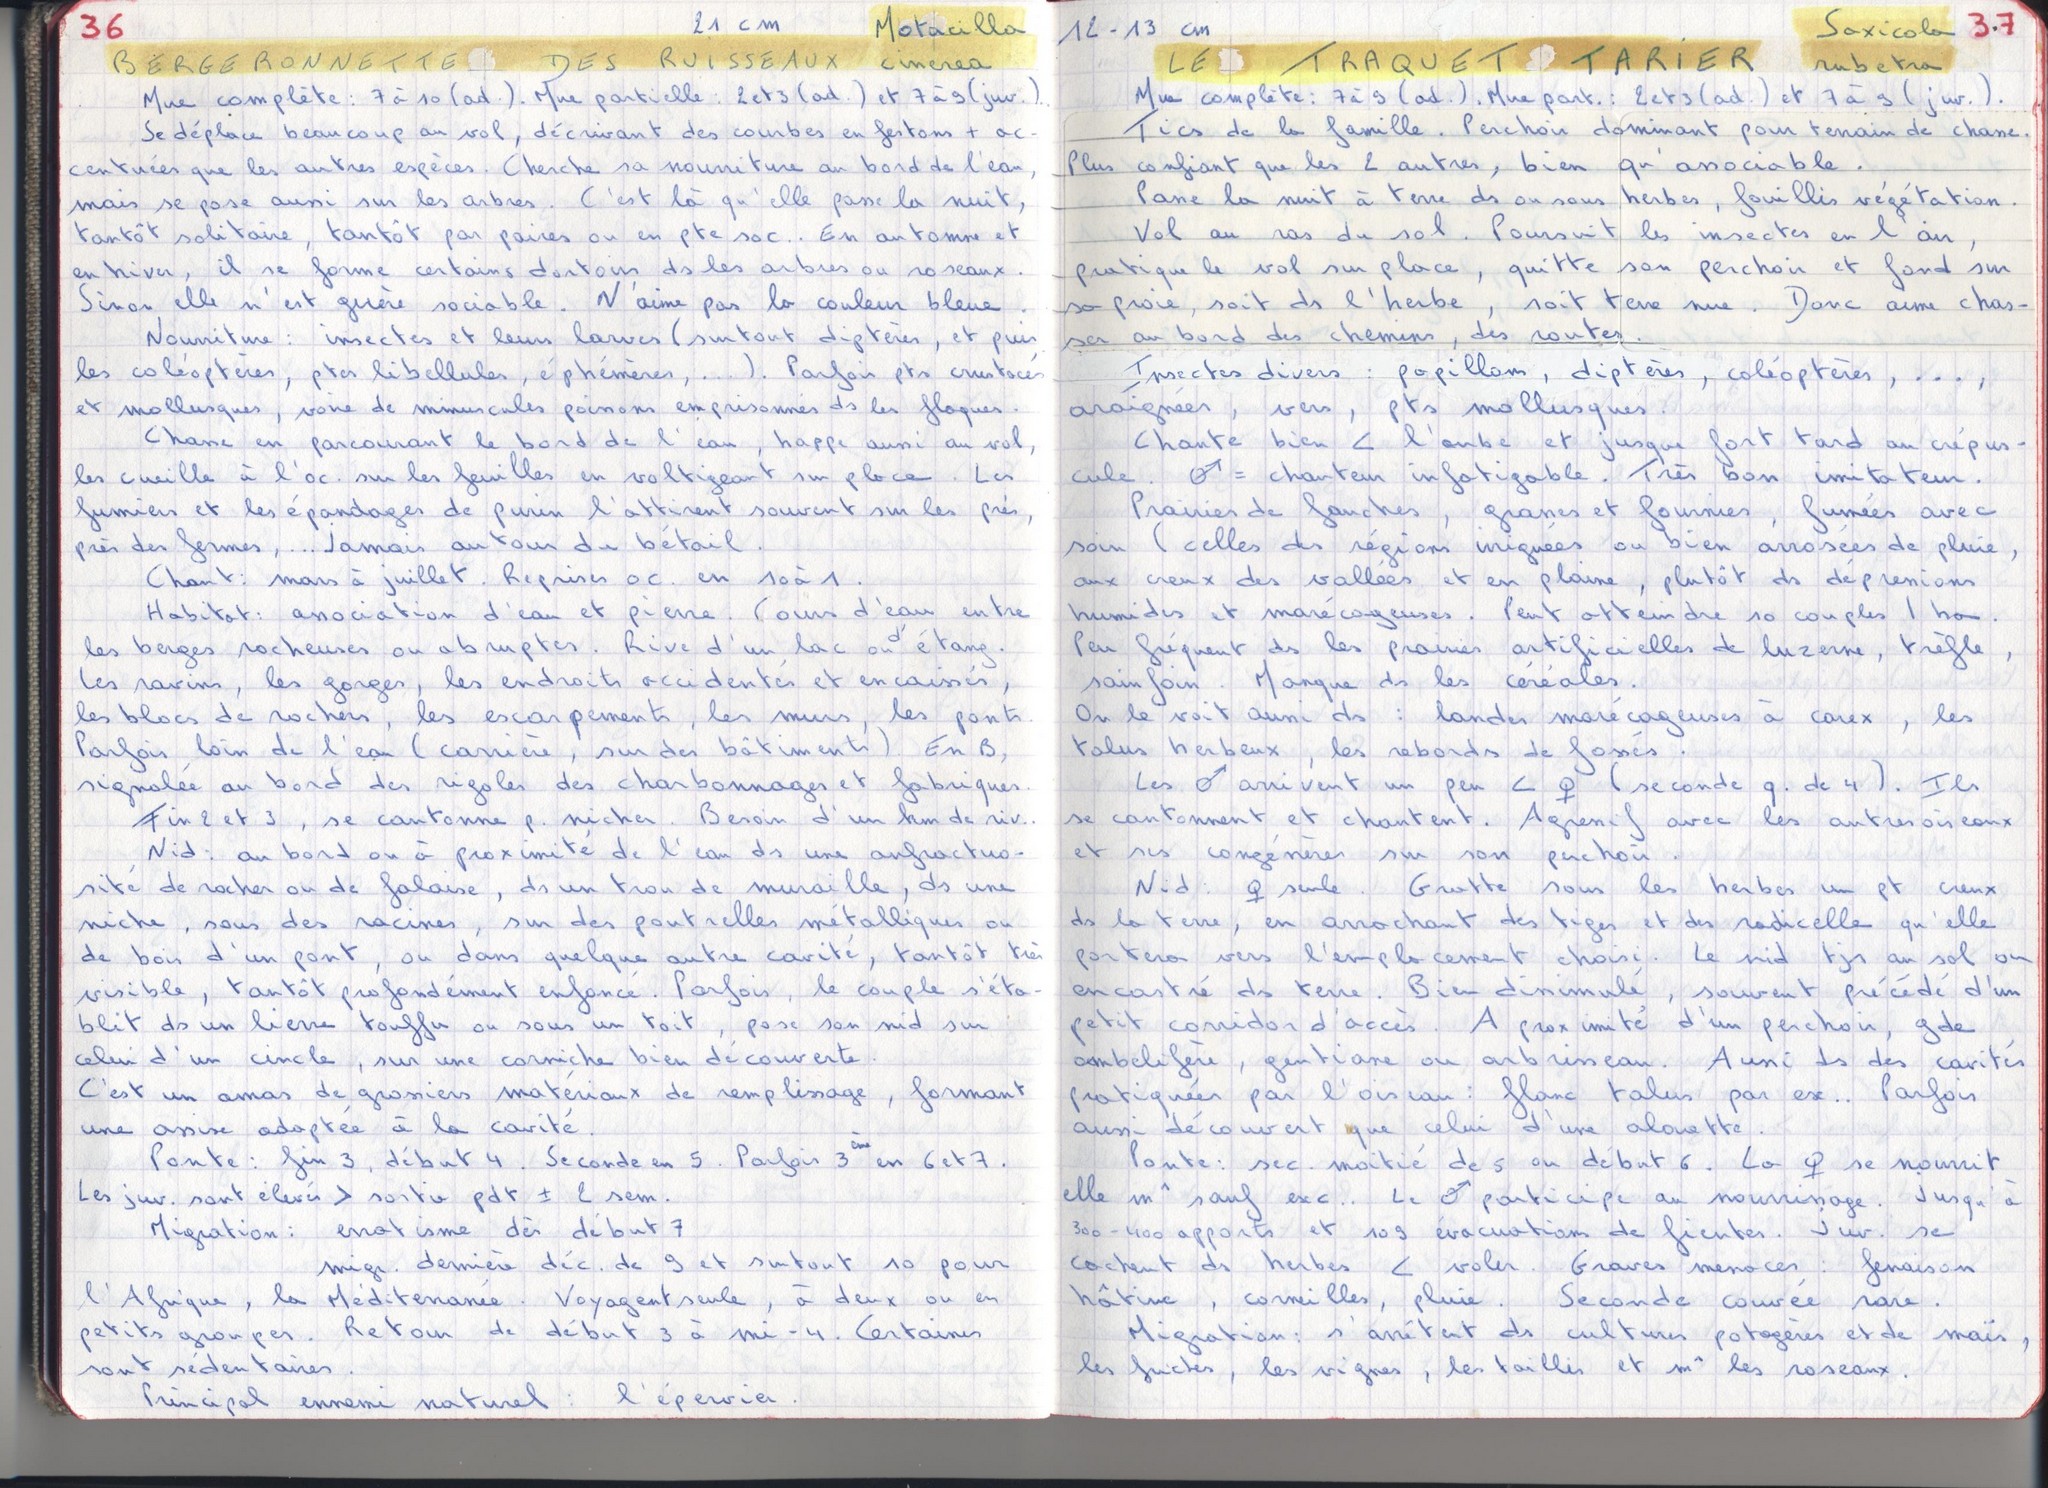 36
21 cm
Motacilla
BERGERONNETTE DES RUISSEAUX cinerea
Mue complète : 7 à 10 (ad.). Mue partielle : 2 et 3 (ad.) et 7 à 9 (juv.).
Se déplace beaucoup au vol, décrivant des courbes en festons + ac-
centuées que les autres espèces. Cherche sa nourriture au bord de l'eau,
mais se pose aussi sur les arbres. C'est là qu'elle passe la nuit,
tantôt solitaire, tantôt par paires ou en pte soc.. En automne et
en hiver, il se forme certains dortoirs ds les arbres ou roseaux.
Sinon elle n'est guère sociable. N'aime pas la couleur bleue.
Nourriture : insectes et leurs larves (surtout diptères, et puis
les coléoptères, ptes libellules, éphémères, ...). Parfois pts crustacés
et mollusques, voire de minuscules poissons emprisonnés ds les flaques.
Chasse en parcourant le bord de l'eau, happe aussi au vol,
les cueille à l'oc. sur les feuilles en voltigeant sur place. Les
fumiers et les épandages de purin l'attirent souvent sur les prés,
près des fermes, ... Jamais autour du bétail.
Chant : mars à juillet. Reprises oc. en 10 à 1.
Habitat : association d'eau et pierre. Cours d'eau entre
les berges rocheuses ou abruptes. Rive d'un lac ou d'étang.
Les ravins, les gorges, les endroits accidentés et encaissés,
les blocs de rochers, les escarpements, les murs, les ponts.
Parfois loin de l'eau (carrière, sur des bâtiments). En B,
signalée au bord des rigoles des charbonnages et fabriques.
Fin 2 et 3, se cantonne p. nicher. Besoin d'un km de riv..
Nid : au bord ou à proximité de l'eau ds une anfractuo-
sité de rocher ou de falaise, ds un trou de muraille, ds une
niche, sous des racines, sur des poutrelles métalliques ou
de bois d'un pont, ou dans quelque autre cavité, tantôt très
visible, tantôt profondément enfoncé. Parfois, le couple s'éta-
blit ds un lierre touffu ou sous un toit, pose son nid sur
celui d'un cincle, sur une corniche bien découverte.
C'est un amas de grossiers matériaux de remplissage, formant
une assise adaptée à la cavité.
Ponte : fin 3, début 4. Seconde en 5. Parfois 3ème en 6 et 7.
Les juv. sont élevés > sortie pdt ± 2 sem.
Migration : erratisme dès début 7
migr. dernière déc. de 9 et surtout 10 pour
l'Afrique, la Méditerranée. Voyagent seule, à deux ou en
petits groupes. Retour de début 3 à mi-4. Certaines
sont sédentaires.
Principal ennemi naturel : l'épervier.
12-13 cm
Saxicola 37
LE TRAQUET TARIER rubetra
Mue complète : 7 à 9 (ad.). Mue part. : 2 et 3 (ad.) et 7 à 9 (juv.).
Tics de la famille. Perchoir dominant pour terrain de chasse.
Plus confiant que les 2 autres, bien qu'associable.
Passe la nuit à terre ds ou sous herbes, fouillis végétation.
Vol au ras du sol. Poursuit les insectes en l'air,
pratique le vol sur place, quitte son perchoir et fond sur
sa proie, soit ds l'herbe, soit terre nue. Donc aime chas-
ser au bord des chemins, des routes.
Insectes divers : papillons, diptères, coléoptères, ...,
araignées, vers, pts mollusques.
Chante bien < l'aube et jusque fort tard au crépus-
cule. ♂ = chanteur infatigable. Très bon imitateur.
Prairies de fauches, grasses et fournies, fumées avec
soin (celles des régions irriguées ou bien arrosées de pluie,
aux creux des vallées et en plaine, plutôt ds dépressions
humides et marécageuses. Peut atteindre 10 couples / ha.
Peu fréquent ds les prairies artificielles de luzerne, trèfle,
sainfoin. Manque ds les céréales.
On le voit aussi ds : landes marécageuses à carex, les
talus herbeux, les rebords de fossés.
Les ♂ arrivent un peu < ♀ (seconde q. de 4). Ils
se cantonnent et chantent. Agressif avec les autres oiseaux
et ses congénères sur son perchoir.
Nid : ♀ seule. Gratte sous les herbes un pt creux
ds la terre, en arrachant des tiges et des radicelle qu'elle
portera vers l'emplacement choisi. Le nid tjs au sol ou
encastré ds terre. Bien dissimulé, souvent précédé d'un
petit corridor d'accès. A proximité d'un perchoir, gde
ombelifère, gentiane ou arbrisseau. Aussi ds des cavités
pratiquées par l'oiseau : flanc talus par ex.. Parfois
aussi découvert que celui d'une alouette.
Ponte : sec. moitié de 5 ou début 6. La ♀ se nourrit
elle m^ sauf exc.. Le ♂ participe au nourrissage. Jusqu'à
300-400 apports et 109 évacuations de fientes. Juv. se
cachent ds herbes < voler. Graves menaces : fenaison
hâtive, corneilles, pluie. Seconde couvée rare.
Migration : s'arrêtent ds cultures potagères et de maïs,
les friches, les vignes, les taillis et m^ les roseaux.